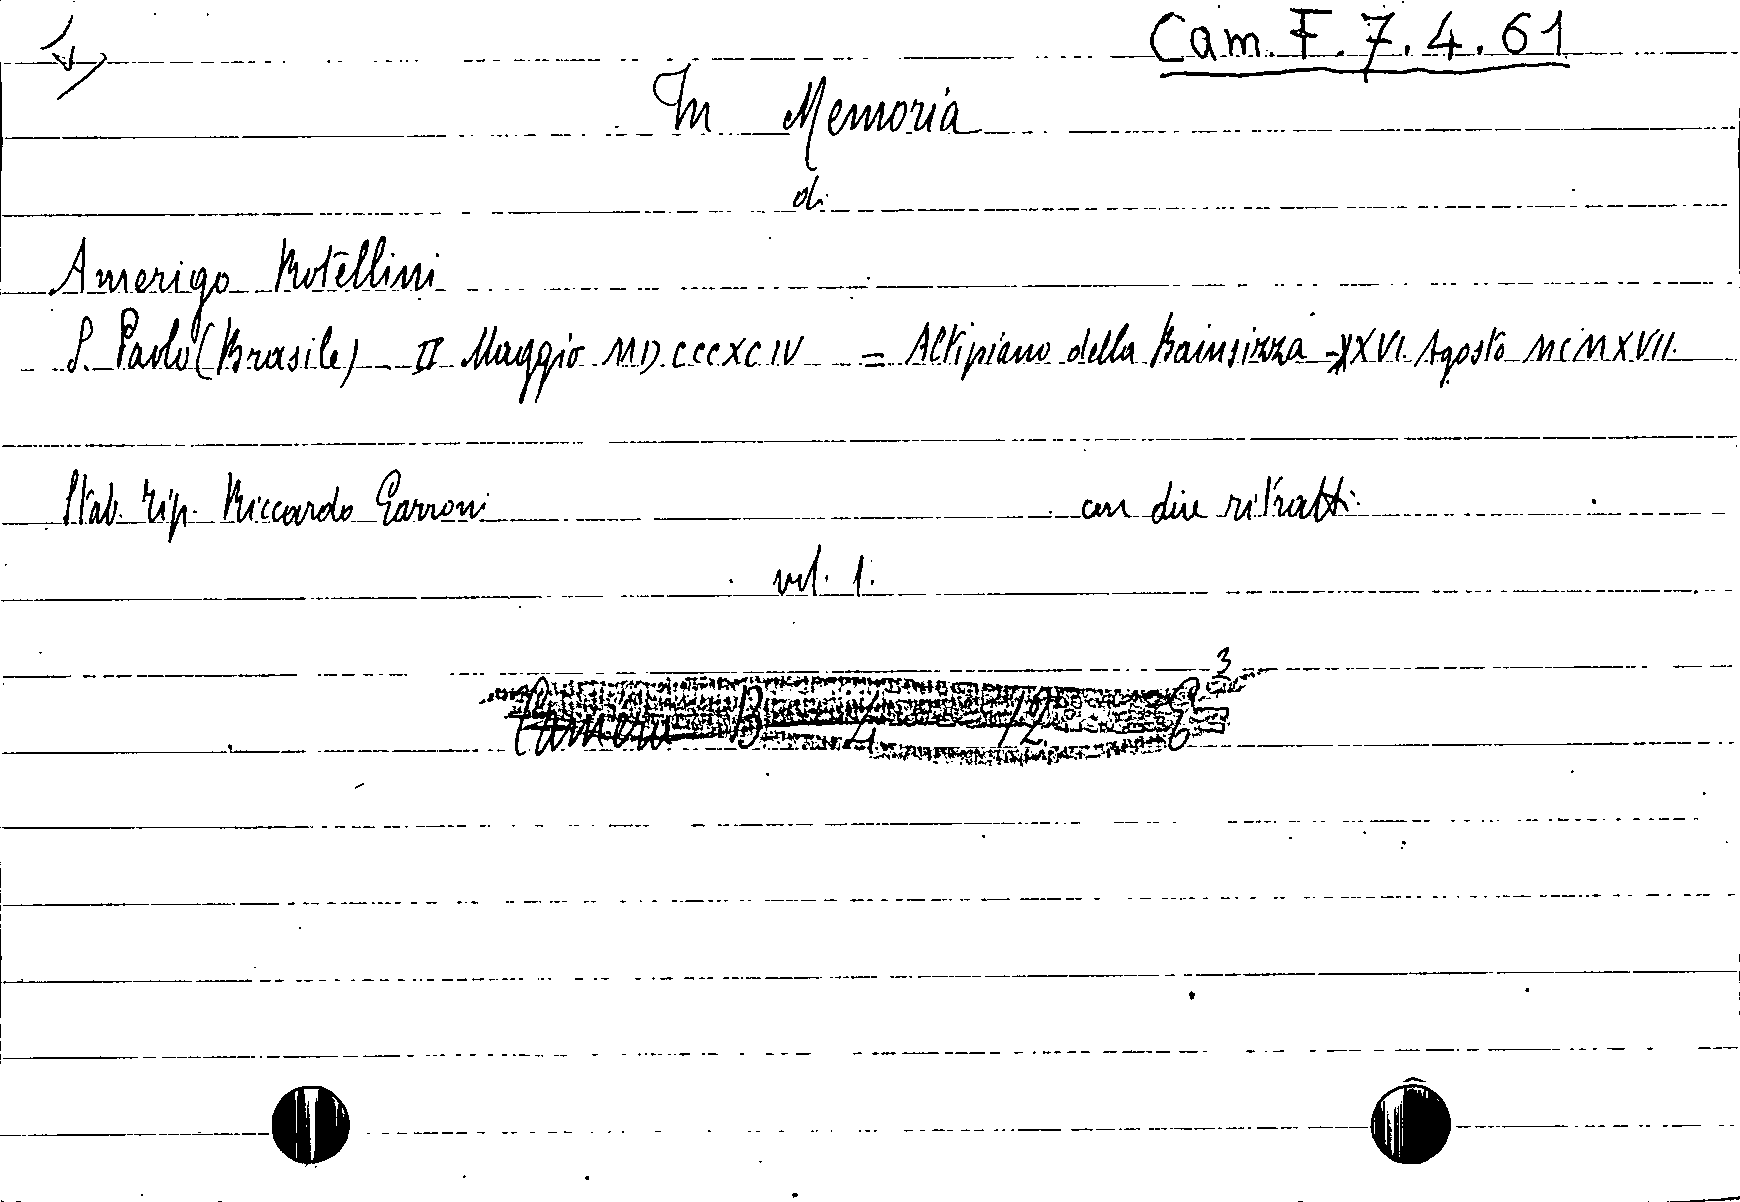 Cam. F. 7. 4. 61
In Memoria
di
Amerigo Rotellini
S. Paolo (Brasile) II Maggio MDCCCXCIV = Altipiano della Bainsizza - XXVI. Agosto MCMXVII.
Stab. tip. Riccardo Garroni con due ritratti.
vol. 1.
Camera B 4 12